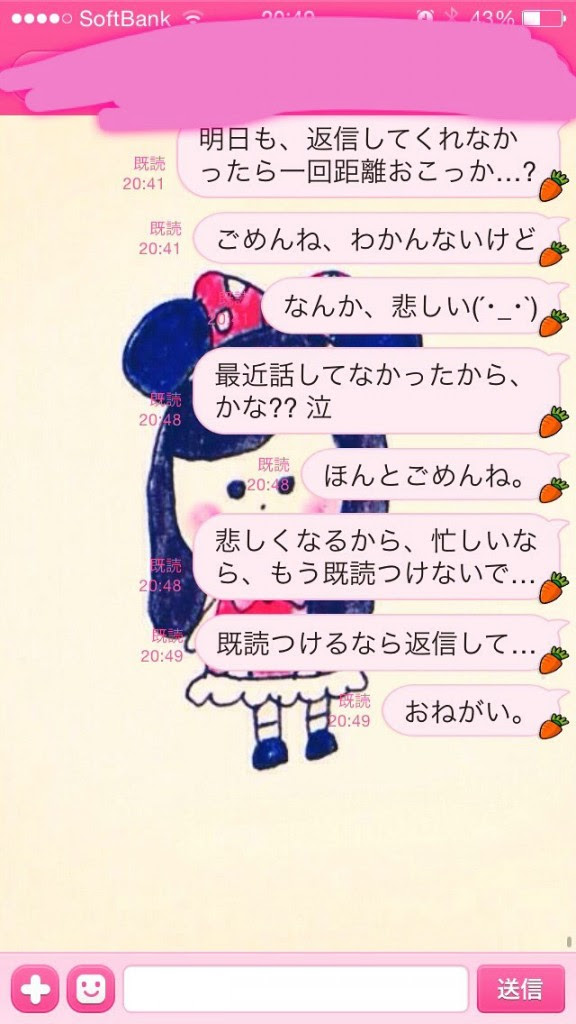 SoftBank
20:49
43%
明日も、返信してくれなか
ったら一回距離おこっか…?
既読
20:41
ごめんね、わかんないけど
既読
20:41
なんか、悲しい(´･_･`)
既読
最近話してなかったから、
かな?? 泣
既読
20:48
ほんとごめんね。
既読
20:48
悲しくなるから、忙しいな
ら、もう既読つけないで…
既読
20:48
既読つけるなら返信して…
既読
20:49
おねがい。
既読
20:49
送信